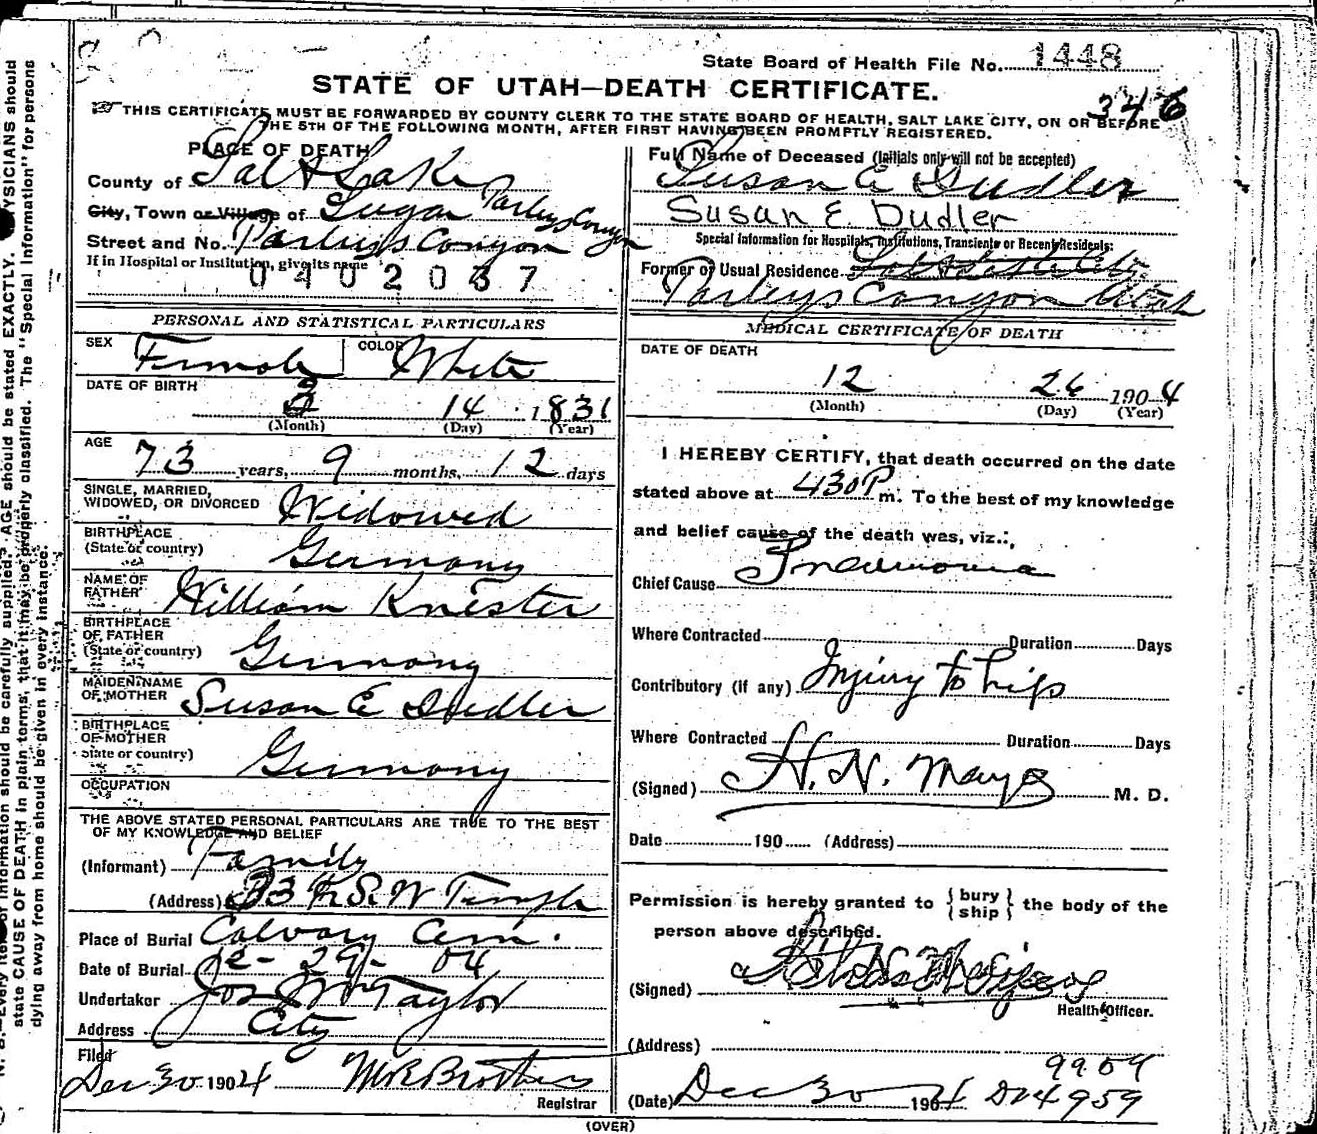 State Board of Health File No. 1448
STATE OF UTAH—DEATH CERTIFICATE.
346
THIS CERTIFICATE MUST BE FORWARDED BY COUNTY CLERK TO THE STATE BOARD OF HEALTH, SALT LAKE CITY, ON OR BEFORE
THE 5TH OF THE FOLLOWING MONTH, AFTER FIRST HAVING BEEN PROMPTLY REGISTERED.
PLACE OF DEATH
County of Salt Lake
City, Town or Village of Sugar Parleys Canyon
Street and No. Parleys Canyon
If in Hospital or Institution, give its name
0402037
PERSONAL AND STATISTICAL PARTICULARS
SEX Female COLOR White
DATE OF BIRTH
14 1831
(Month) (Day) (Year)
AGE 73 years, 9 months, 12 days
SINGLE, MARRIED,
WIDOWED, OR DIVORCED Widowed
BIRTHPLACE
(State or country) Germany
NAME OF
FATHER William Knister
BIRTHPLACE
OF FATHER
(State or country) Germany
MAIDEN NAME
OF MOTHER Susan E Dudler
BIRTHPLACE
OF MOTHER
State or country) Germany
OCCUPATION
THE ABOVE STATED PERSONAL PARTICULARS ARE TRUE TO THE BEST
OF MY KNOWLEDGE AND BELIEF
(Informant) Family
(Address) S. W Temple
Place of Burial Calvary Cem.
Date of Burial De- 29- 04
Undertaker Jos Wm Taylor
Address City
Filed
Dec 30 1904
Registrar
Full Name of Deceased (Initials only will not be accepted)
Susan E Dudler
Susan E. Dudler
Special Information for Hospitals, Institutions, Transients or Recent Residents:
Former or Usual Residence Salt Lake City
Parleys Canyon Utah
MEDICAL CERTIFICATE OF DEATH
DATE OF DEATH
12 26 1904
(Month) (Day) (Year)
I HEREBY CERTIFY, that death occurred on the date
stated above at 430 P m. To the best of my knowledge
and belief cause of the death was, viz.:
Chief Cause Pneumonia
Where Contracted Duration Days
Contributory (if any) Injury to hip
Where Contracted Duration Days
(Signed) H. N. Mayo M. D.
Date 190 (Address)
Permission is hereby granted to {bury
ship} the body of the
person above described.
(Signed)
Health Officer.
(Address)
9904
(Date) Dec 30 1904 4959
(OVER)
N. B.—Every item of information should be carefully supplied. AGE should be stated EXACTLY. PHYSICIANS should
state CAUSE OF DEATH in plain terms, that it may be properly classified. The "Special Information" for persons
dying away from home should be given in every instance.